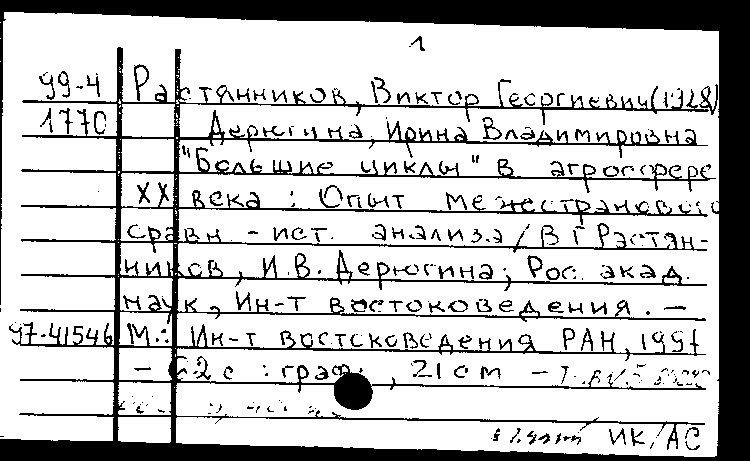 1
99-4 Растянников, Виктор Георгиевич (1928)
1770 Дерюгина, Ирина Владимировна
"Большие циклы" в агросфере
XX века : Опыт межстранового
сравн. - ист. анализа / В Г Растян-
ников, И.В. Дерюгина; Рос. акад.
наук, Ин-т востоковедения. —
97-41546 М.: Ин-т востоковедения РАН, 1997
— 62 с : граф. , 21 см —
ИК/АС